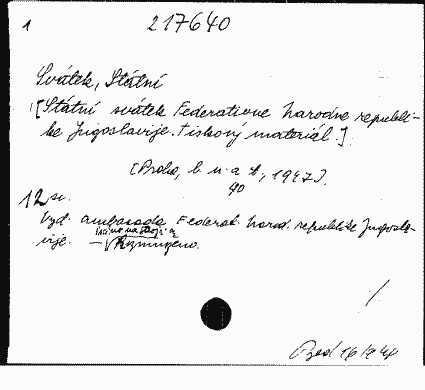 1 217640
Svátek, Státní
[Státní svátek Federativne narodne republi-
ke Jugoslavije. Tiskový materiál.]
[Praha, b. n. a t., 1947].
40
12 s.
Vyd. ambasada Federat. narod. republike Jugosla-
vije.